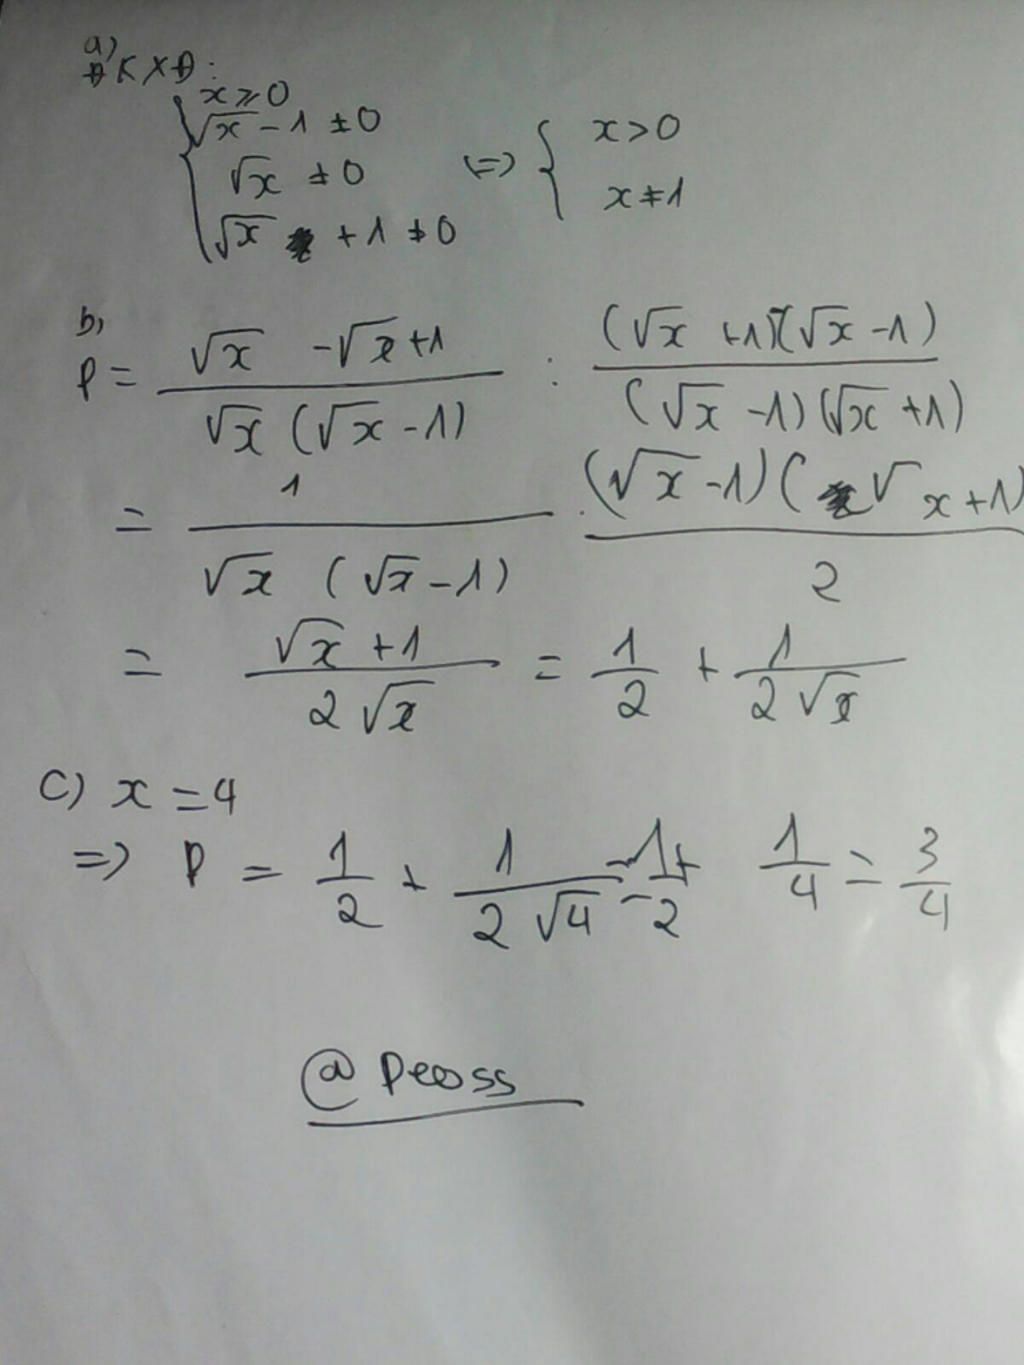 a)
ĐKXĐ:
{ x ≥ 0
√x - 1 ≠ 0
√x ≠ 0 <=> { x > 0
x ≠ 1
√x + 1 ≠ 0
b,
P = (√x - √x + 1) / (√x (√x - 1)) : ((√x + 1)(√x - 1)) / ((√x - 1)(√x + 1))
= 1 / (√x (√x - 1)) . ((√x - 1)(√x + 1)) / 2
= (√x + 1) / (2√x) = 1/2 + 1/(2√x)
C) x = 4
=> P = 1/2 + 1/(2√4) = 1/2 + 1/4 = 3/4